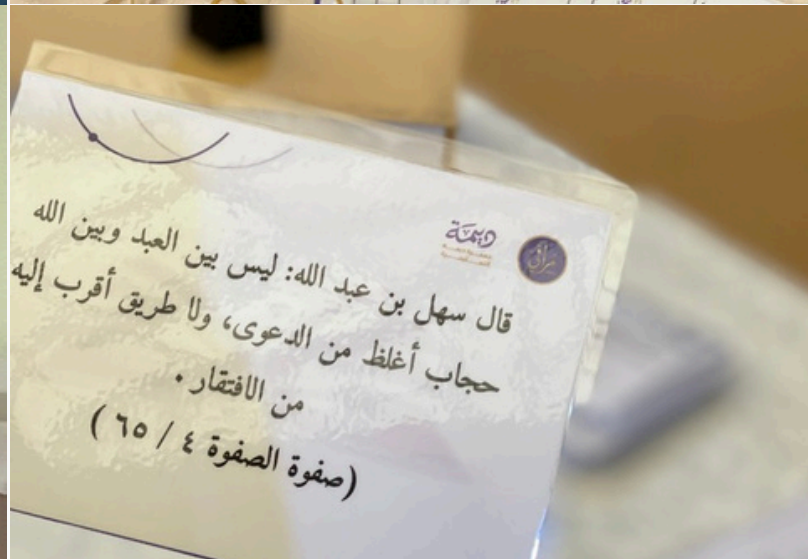 ديمة
قال سهل بن عبد الله: ليس بين العبد وبين الله
حجاب أغلظ من الدعوى، ولا طريق أقرب إليه
من الافتقار.
(صفوة الصفوة ٤ / ٦٥)